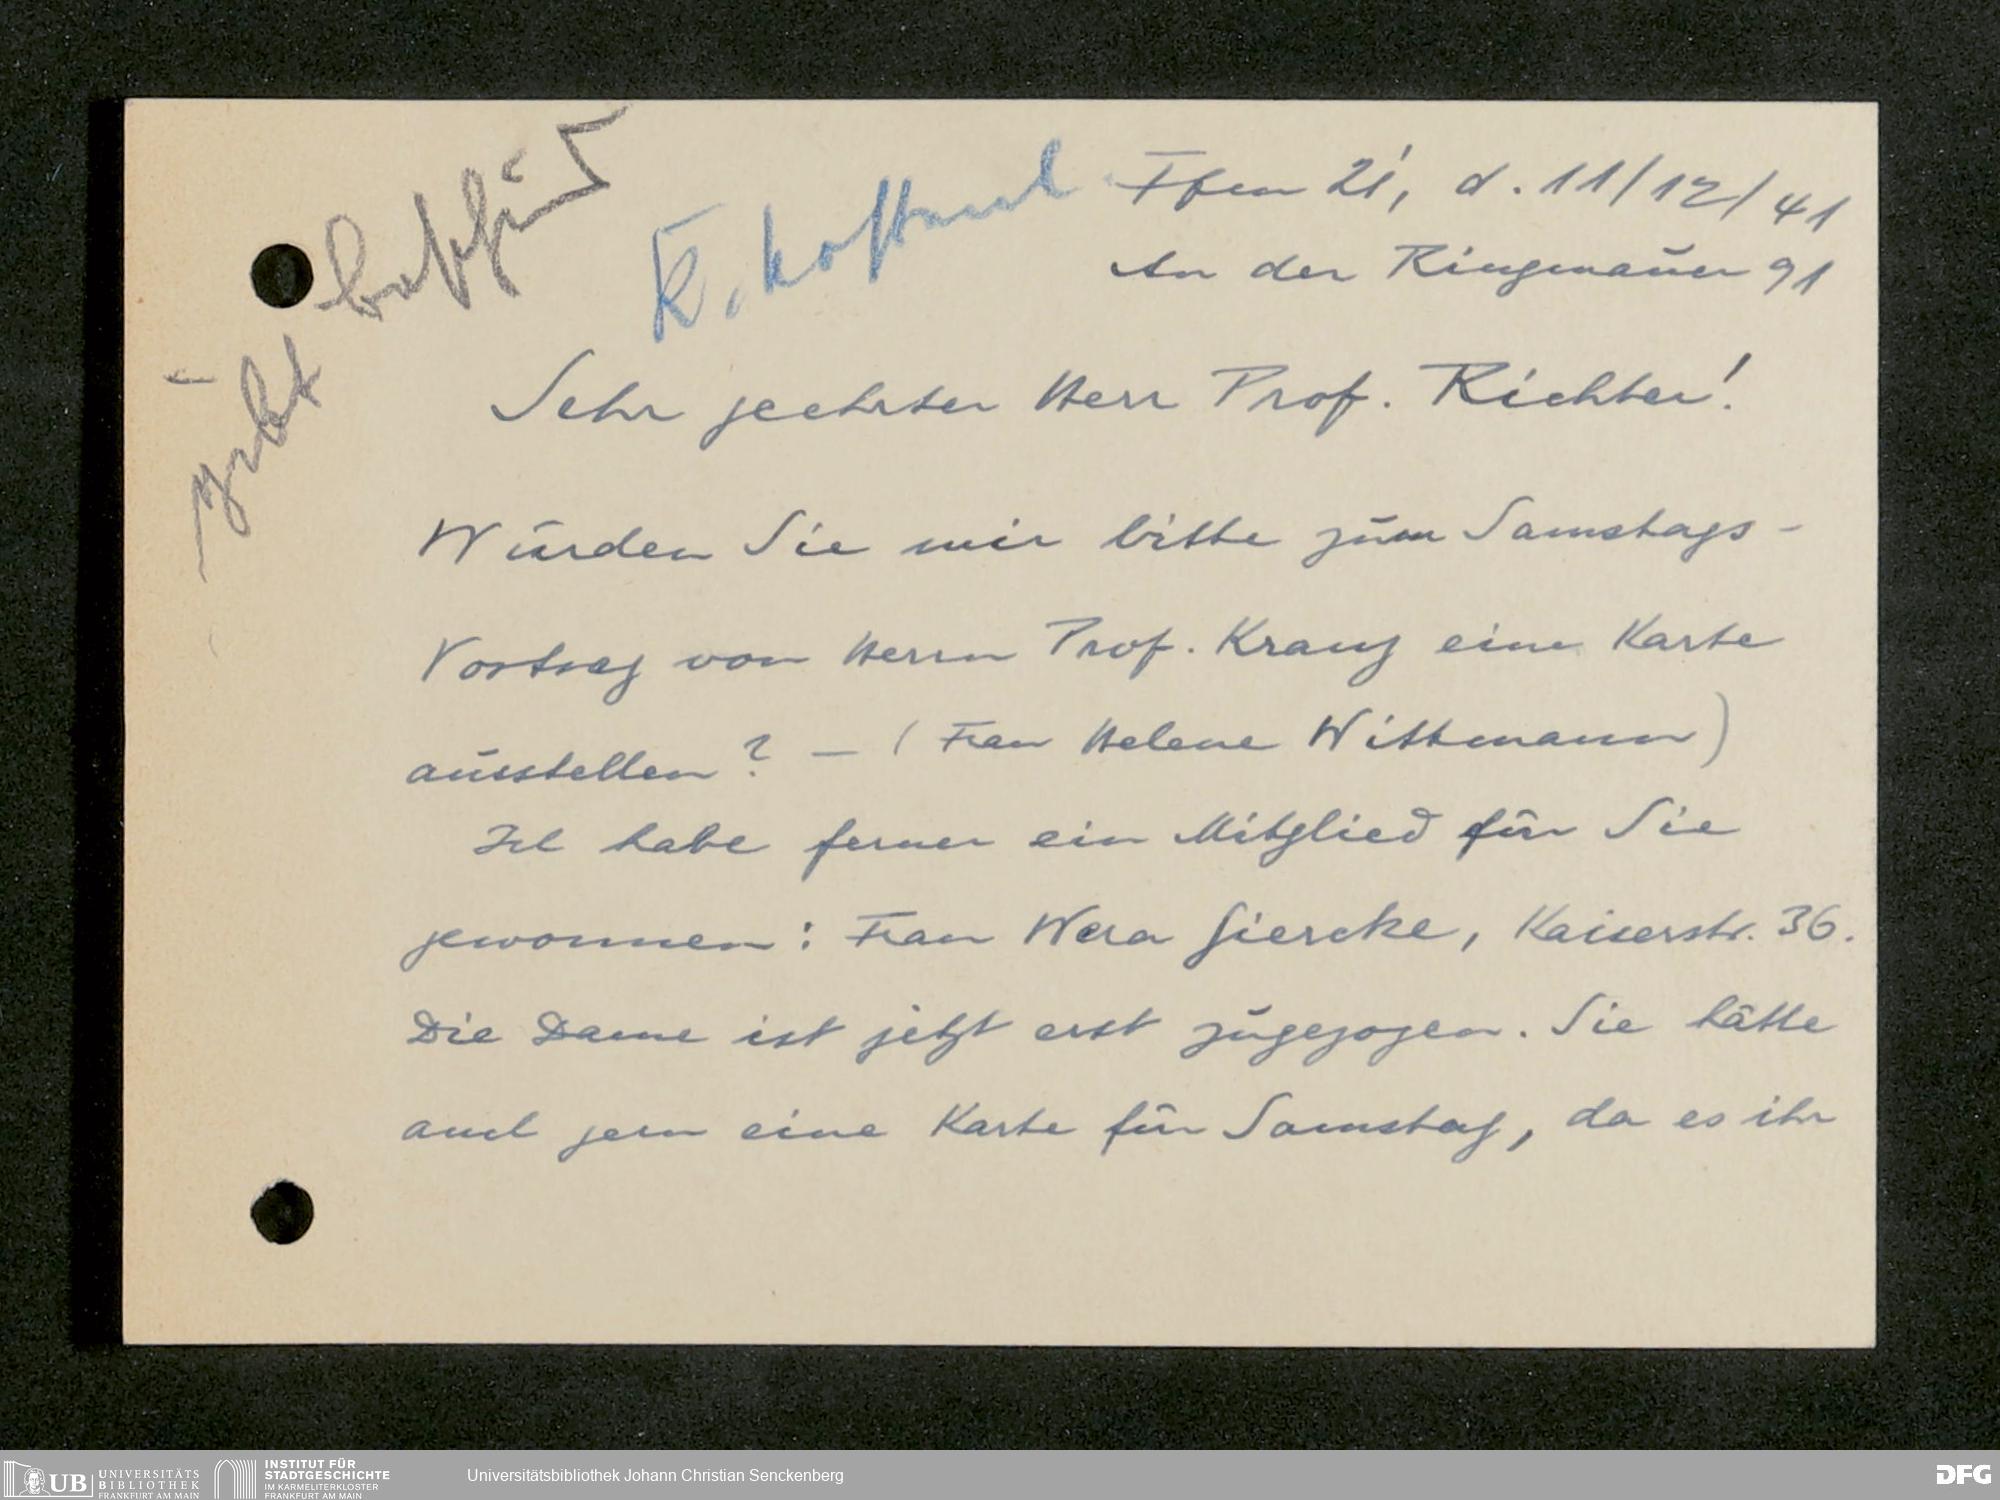 Ffm 21, d. 11/12/41
An der Ringmauer 91
Sehr geehrter Herr Prof. Richter!
Würden Sie mir bitte zum Samstags-
Vortrag von Herrn Prof. Kranz eine Karte
ausstellen? – (Frau Helene Wittmann)
Ich habe ferner ein Mitglied für Sie
gewonnen: Frau Wera Giercke, Kaiserstr. 36.
Die Dame ist jetzt erst zugezogen. Sie hätte
auch gern eine Karte für Samstag, da es ihr
UB UNIVERSITÄTS
BIBLIOTHEK
FRANKFURT AM MAIN
INSTITUT FÜR
STADTGESCHICHTE
IM KARMELITERKLOSTER
FRANKFURT AM MAIN
Universitätsbibliothek Johann Christian Senckenberg
DFG